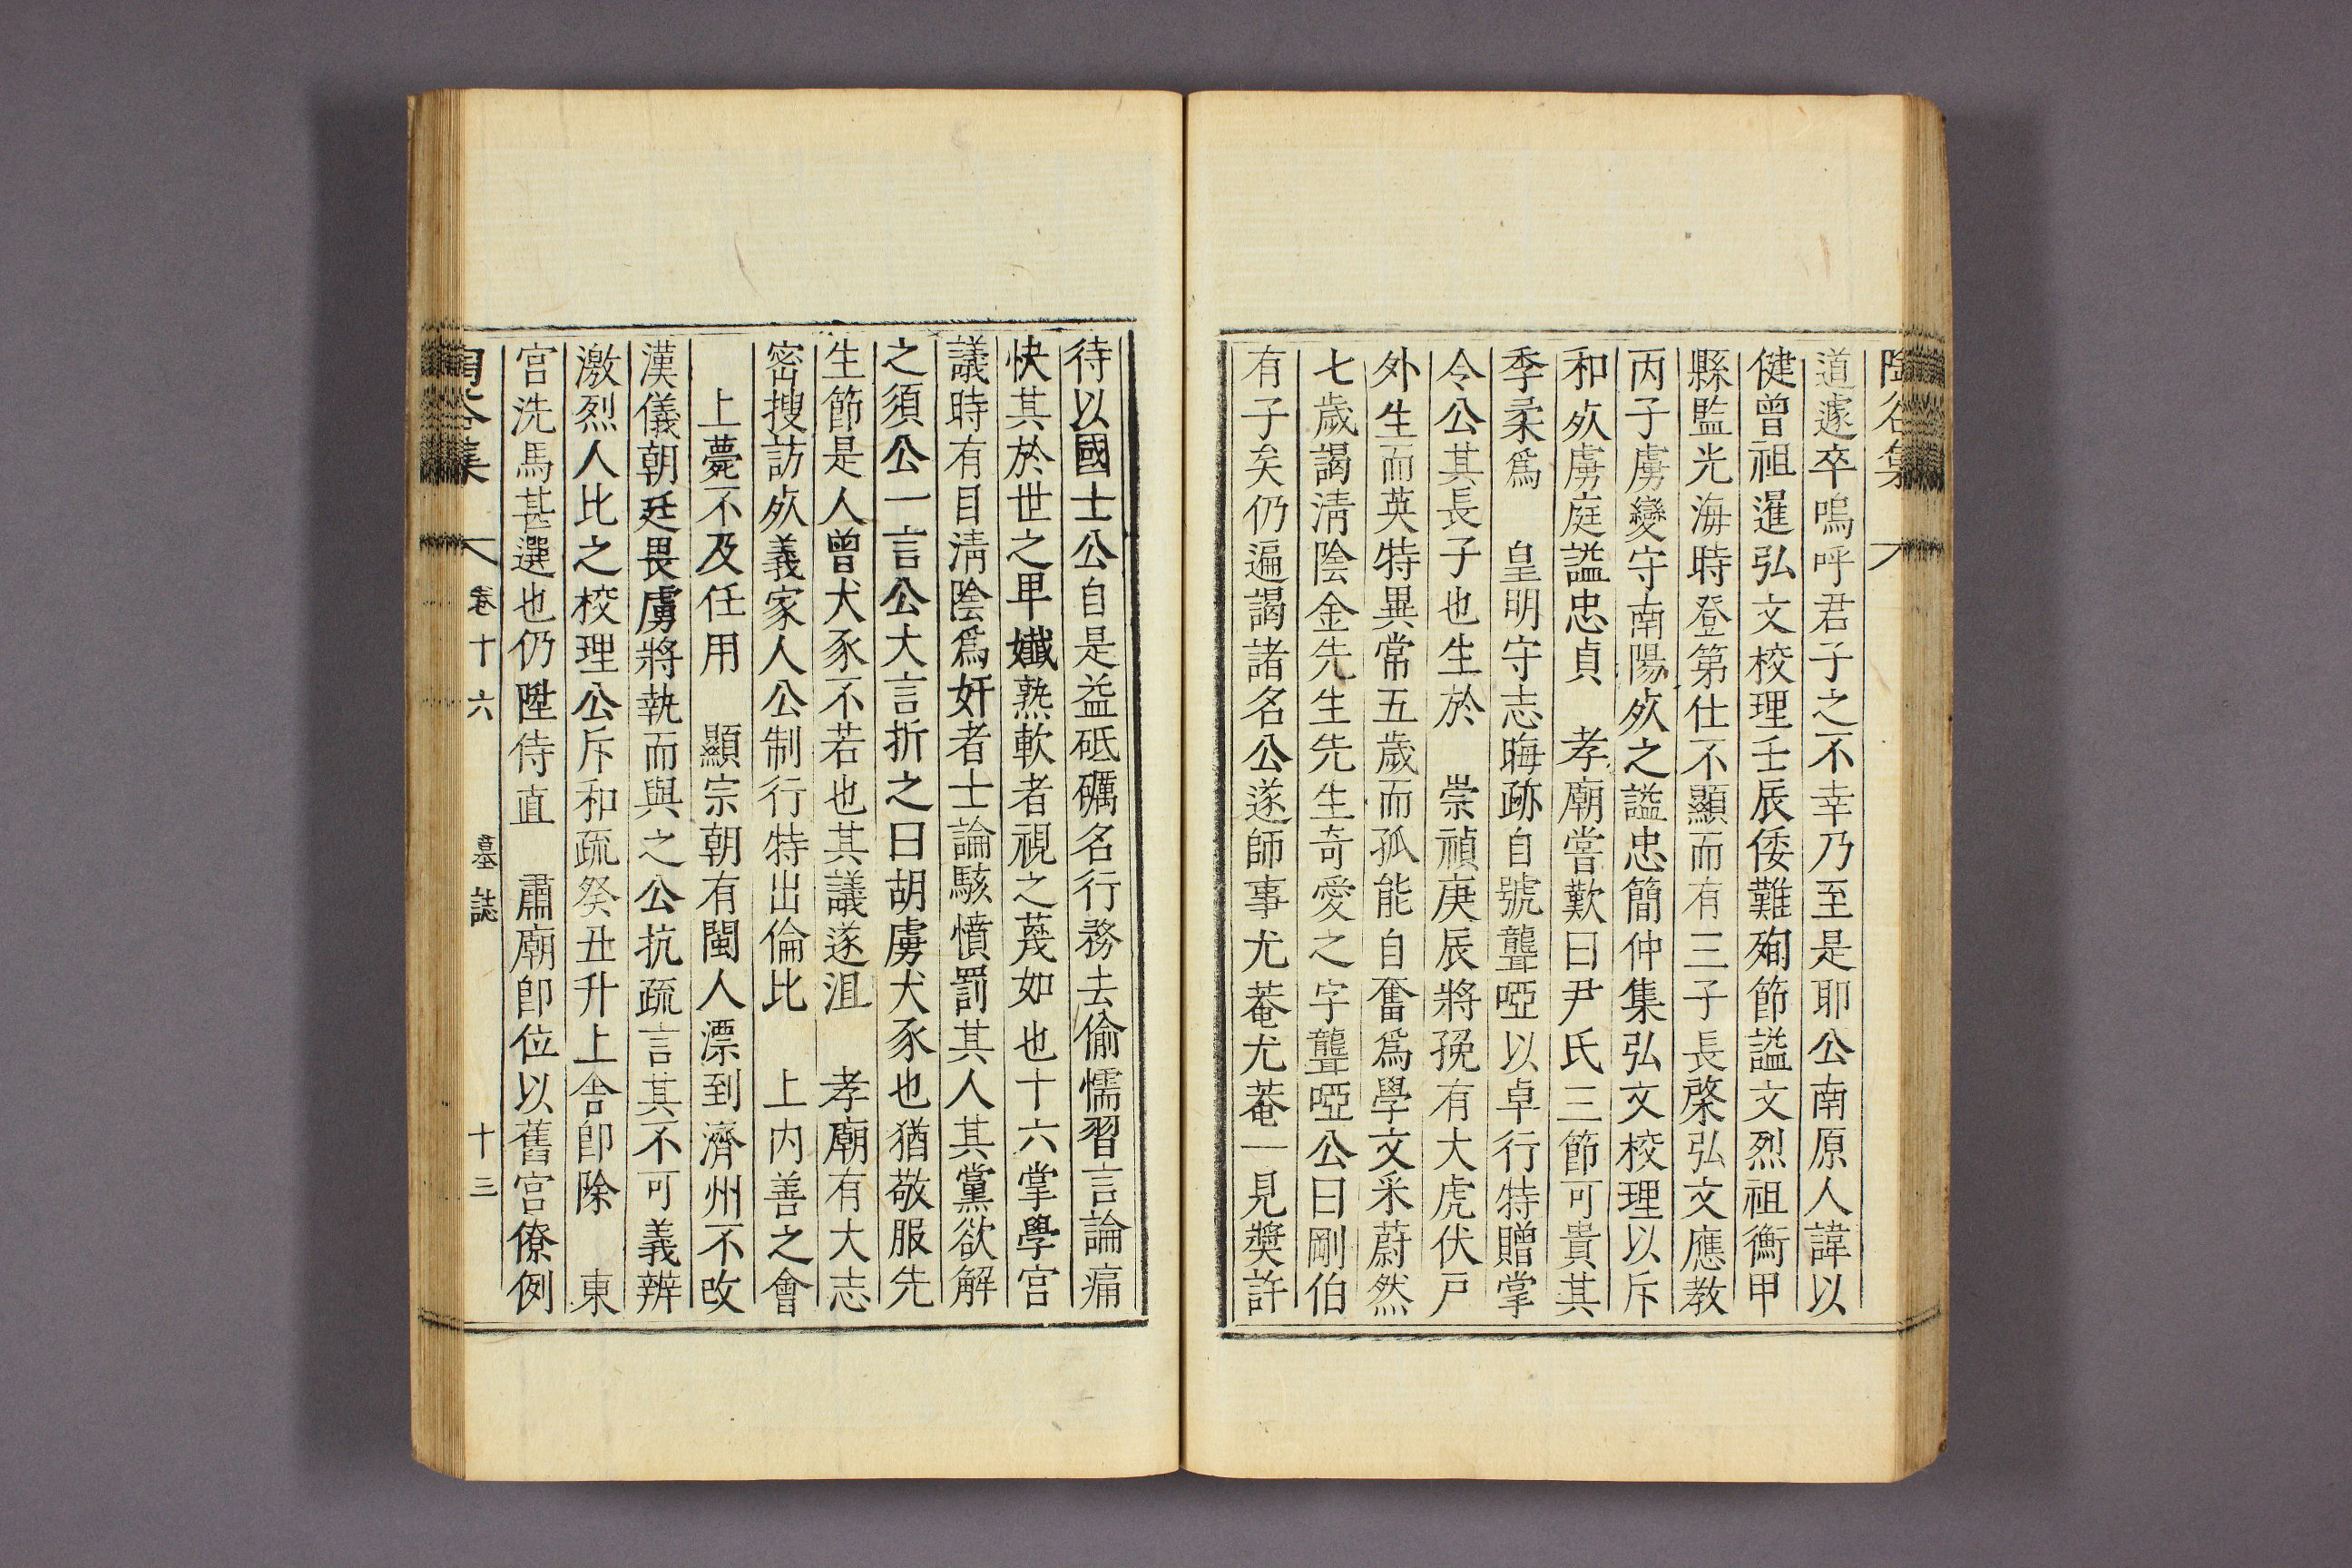 道遽卒嗚呼君子之不幸乃至是耶公南原人諱以
健曾祖暹弘文校理壬辰倭難殉節謚文烈祖衡甲
縣監光海時登第仕不顯而有三子長棨弘文應教
丙子虜變守南陽死之謚忠簡仲集弘文校理以斥
和死虜庭謚忠貞 孝廟嘗歎曰尹氏三節可貴其
季柔爲 皇明守志晦跡自號聾啞以卓行特贈掌
令公其長子也生於 崇禎庚辰將娩有大虎伏戶
外生而英特異常五歲而孤能自奮爲學文采蔚然
七歲謁淸陰金先生先生奇愛之字聾啞公曰剛伯
有子矣仍遍謁諸名公遂師事尤菴尤菴一見奬許
待以國士公自是益砥礪名行務去偷懦習言論痛
快其於世之卑孅熟軟者視之蔑如也十六掌學宮
議時有目淸陰爲奸者士論駭憤罰其人其黨欲解
之須公一言公大言折之曰胡虜犬豕也猶敬服先
生節是人曾犬豕不若也其議遂沮 孝廟有大志
密搜訪死義家人公制行特出倫比 上內善之會
上薨不及任用 顯宗朝有閩人漂到濟州不改
漢儀朝廷畏虜將執而與之公抗疏言其不可義辨
激烈人比之校理公斥和疏癸丑升上舍卽除 東
宮洗馬甚選也仍陞侍直 肅廟卽位以舊宮僚例
卷十六 墓誌 十三